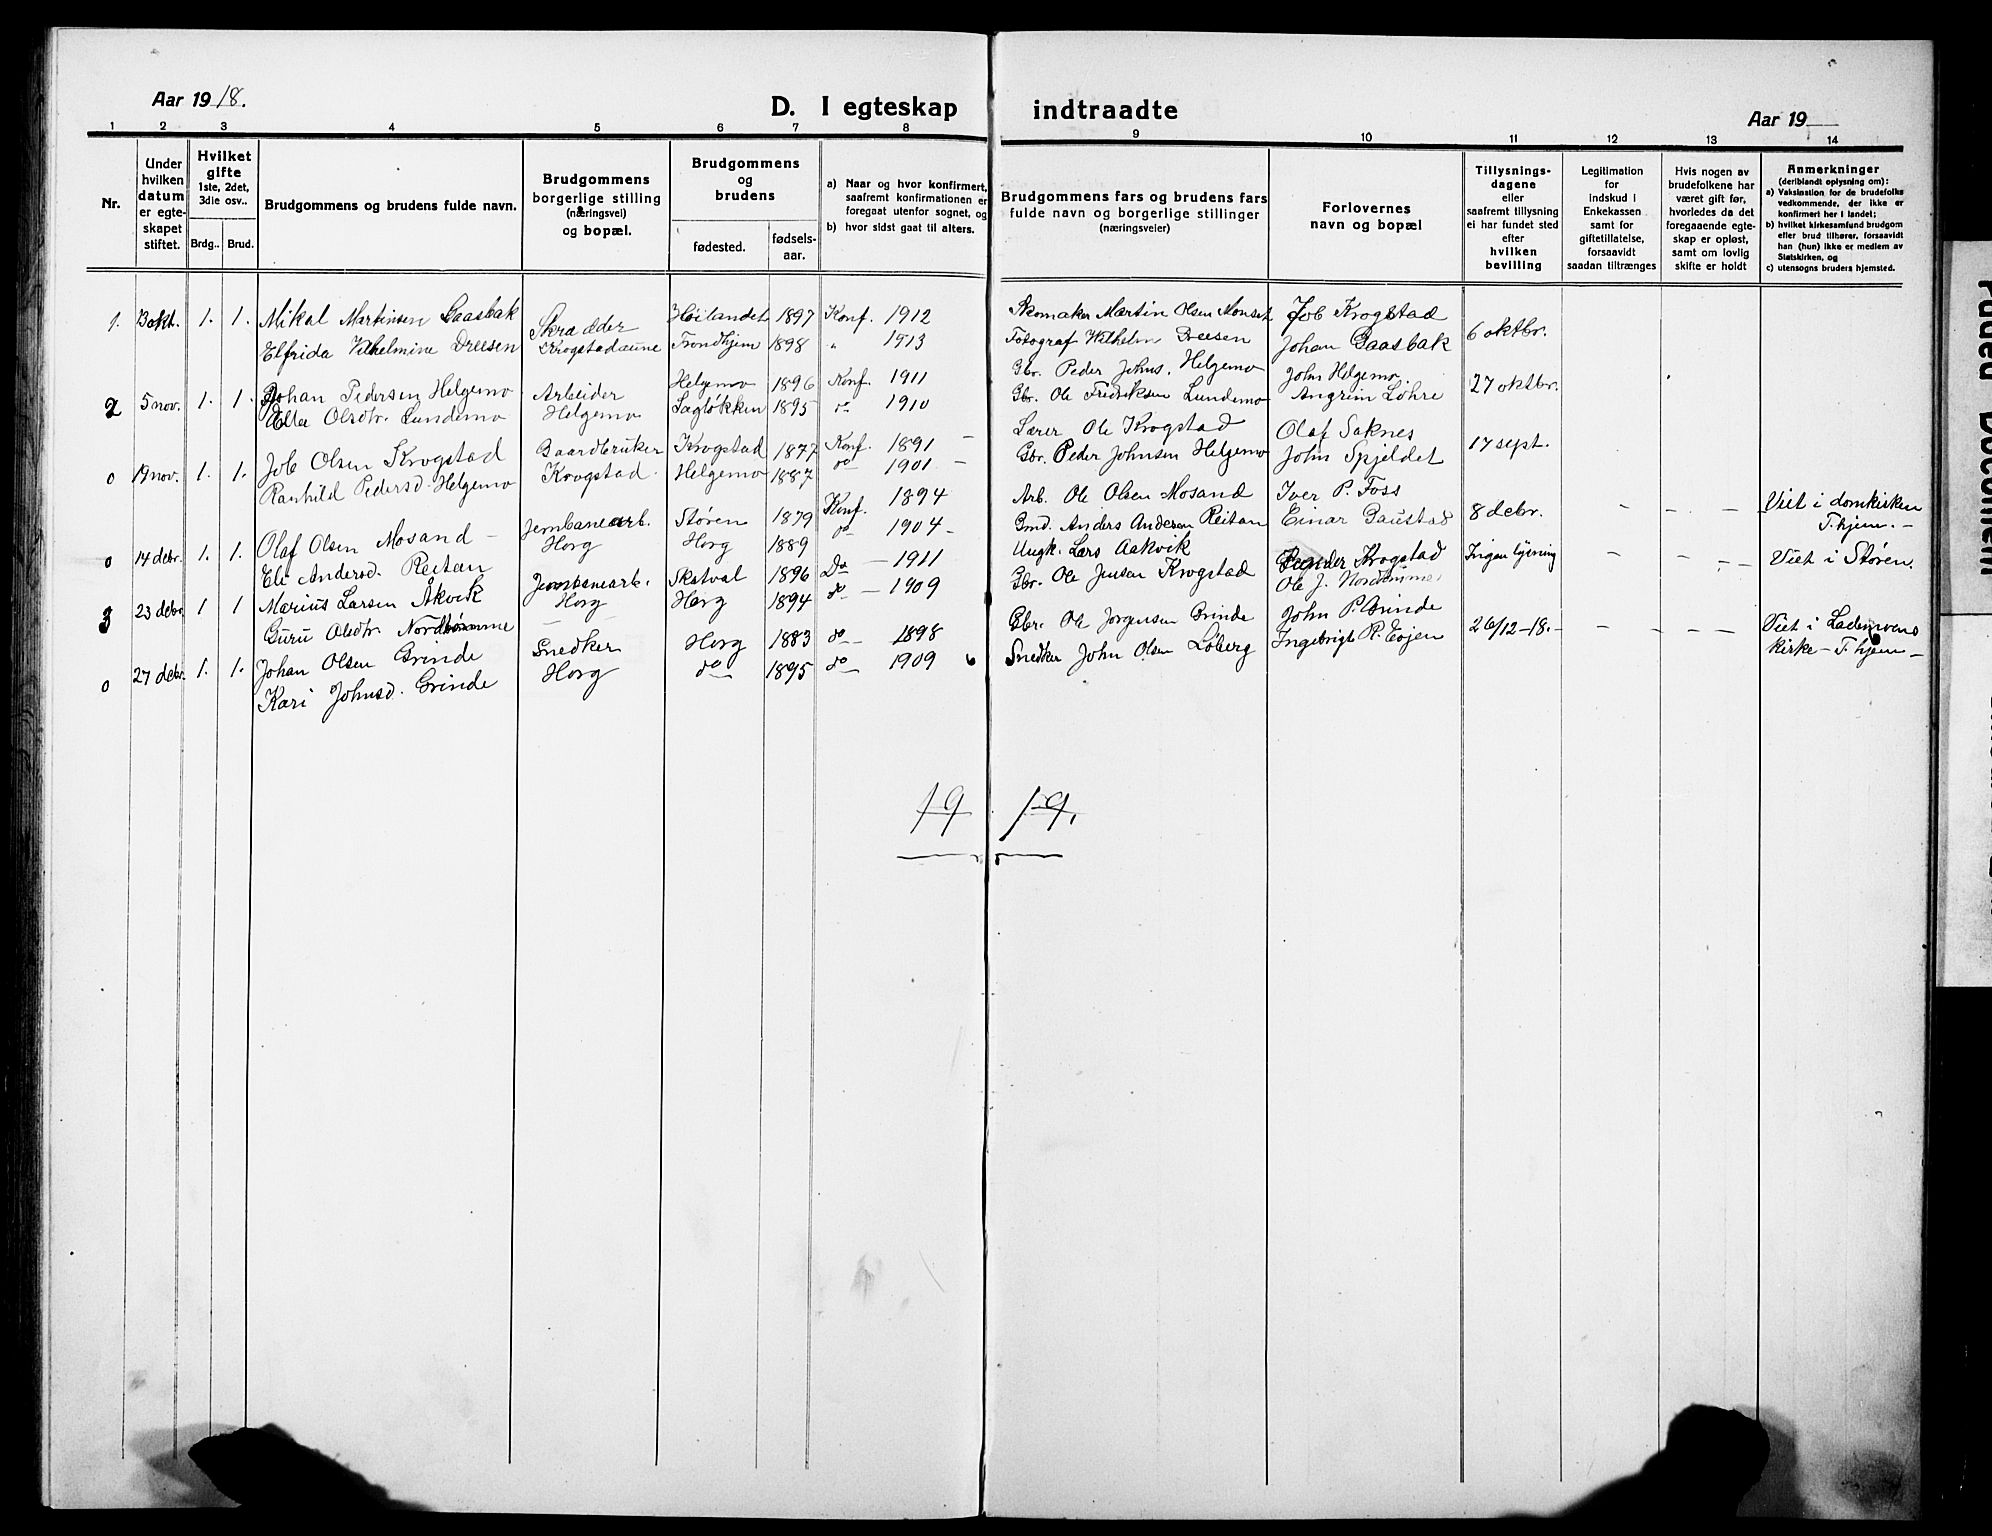 Aar 1918.
D. I egteskap indtraadte
Aar 19
1 2 3 4 5 6 7 8 9 10 11 12 13 14
Nr.
Under hvilken datum er egte-skapet stiftet.
Hvilket gifte
1ste, 2det, 3die osv..
Brdg.. Brud.
Brudgommens og brudens fulde navn.
Brudgommens borgerlige stilling
(næringsvei)
og bopæl.
Brudgommens og brudens
fødested.
fødsels-aar.
a) Naar og hvor konfirmert, saafremt konfirmationen er foregaat utenfor sognet, og
b) hvor sidst gaat til alters.
Brudgommens fars og brudens fars
fulde navn og borgerlige stillinger
(næringsveier)
Forlovernes
navn og bopæl
Tillysnings-dagene
eller
saafremt tillysning ei har fundet sted efter
hvilken bevilling
Legitimation for Indskud i Enkekassen samt for giftetillatelse, forsaavidt saadan tiltrænges
Hvis nogen av brudefolkene har været gift før, hvorledes da det foregaaende egte-skap er opløst, samt om lovlig skifte er holdt
Anmerkninger
(deriblandt oplysning om):
a) Vaksination for de brudefolks vedkommende, der ikke er konfirmert her i landet;
b) hvilket kirkesamfund brudgom eller brud tilhører, forsaavidt han (hun) ikke er medlem av Statskirken, og
c) utensogns bruders hjemsted.
1. 13 okt. 1. 1. Mikal Martinsen Gaasbak Skrædder Høilandet 1897 Konf. 1912 Skomaker Martin Olsen Monset Job Krogstad 6 oktbr.
Elfrida Vilhelmine Dreesen Krogstadaune Trondhjem 1898 " 1913 Fotograf Wilhelm Dreesen Johan Gaasbak
2 5 nov. 1. 1. Johan Pedersen Helgemo Arbeider Helgemo 1896 Konf. 1911 Gbr. Peder Johns. Helgemo John Helgemo 27 oktbr.
Olsdtr. Lundemo Helgemo Sagløkken 1895 do 1910 Gbr. Ole Fredriksen Lundemo Angrim Løhre
0 19 nov. 1. 1. Job Olsen Krogstad Gaardbruker Krogstad 1877 Konf. 1891 — Lærer Ole Krogstad Olaf Saknes 17 sept.
Ranhild Pedersd. Helgemo Krogstad Helgemo 1887 do 1901 — Gbr. Peder Johnsen Helgemo John Spjeldet
0 14 debr. 1. 1. Olaf Olsen Mosand — Jernbanearb. Støren 1879 Konf. 1894 Arb. Ole Olsen Mosand Iver P. Foss 8 debr. — — — Viet i domkirken
Eli Andersd. Reitan Horg Horg 1889 do 1904 — Gmd. Anders Andersen Reitan Einar Gaustad T.hjem. —
3 23 debr 1 1 Marius Larsen Åkvik Jernbanearb. Skatval 1896 Do — 1911 Ungk. Lars Aakvik Krogstad Ingen lysning — — — — Viet i Støren.
Guru Olsdtr. Nordtømme Horg Horg 1894 do — 1909 Gbr. Ole Jensen Krogstad Ole J. Nordtømme
0 27 debr. 1. 1. Johan Olsen Grinde Snedker Horg 1883 do — 1898 Gbr. Ole Jørgensen Grinde John P. Grinde 26/12–18. — — — — — Viet i Lademoens
Kari Johnsd. Grinde Horg do 1895 do 1909 Snedker John Olsen Løberg Ingebrigt R. Eojen kirke — T.hjem —
19 19.